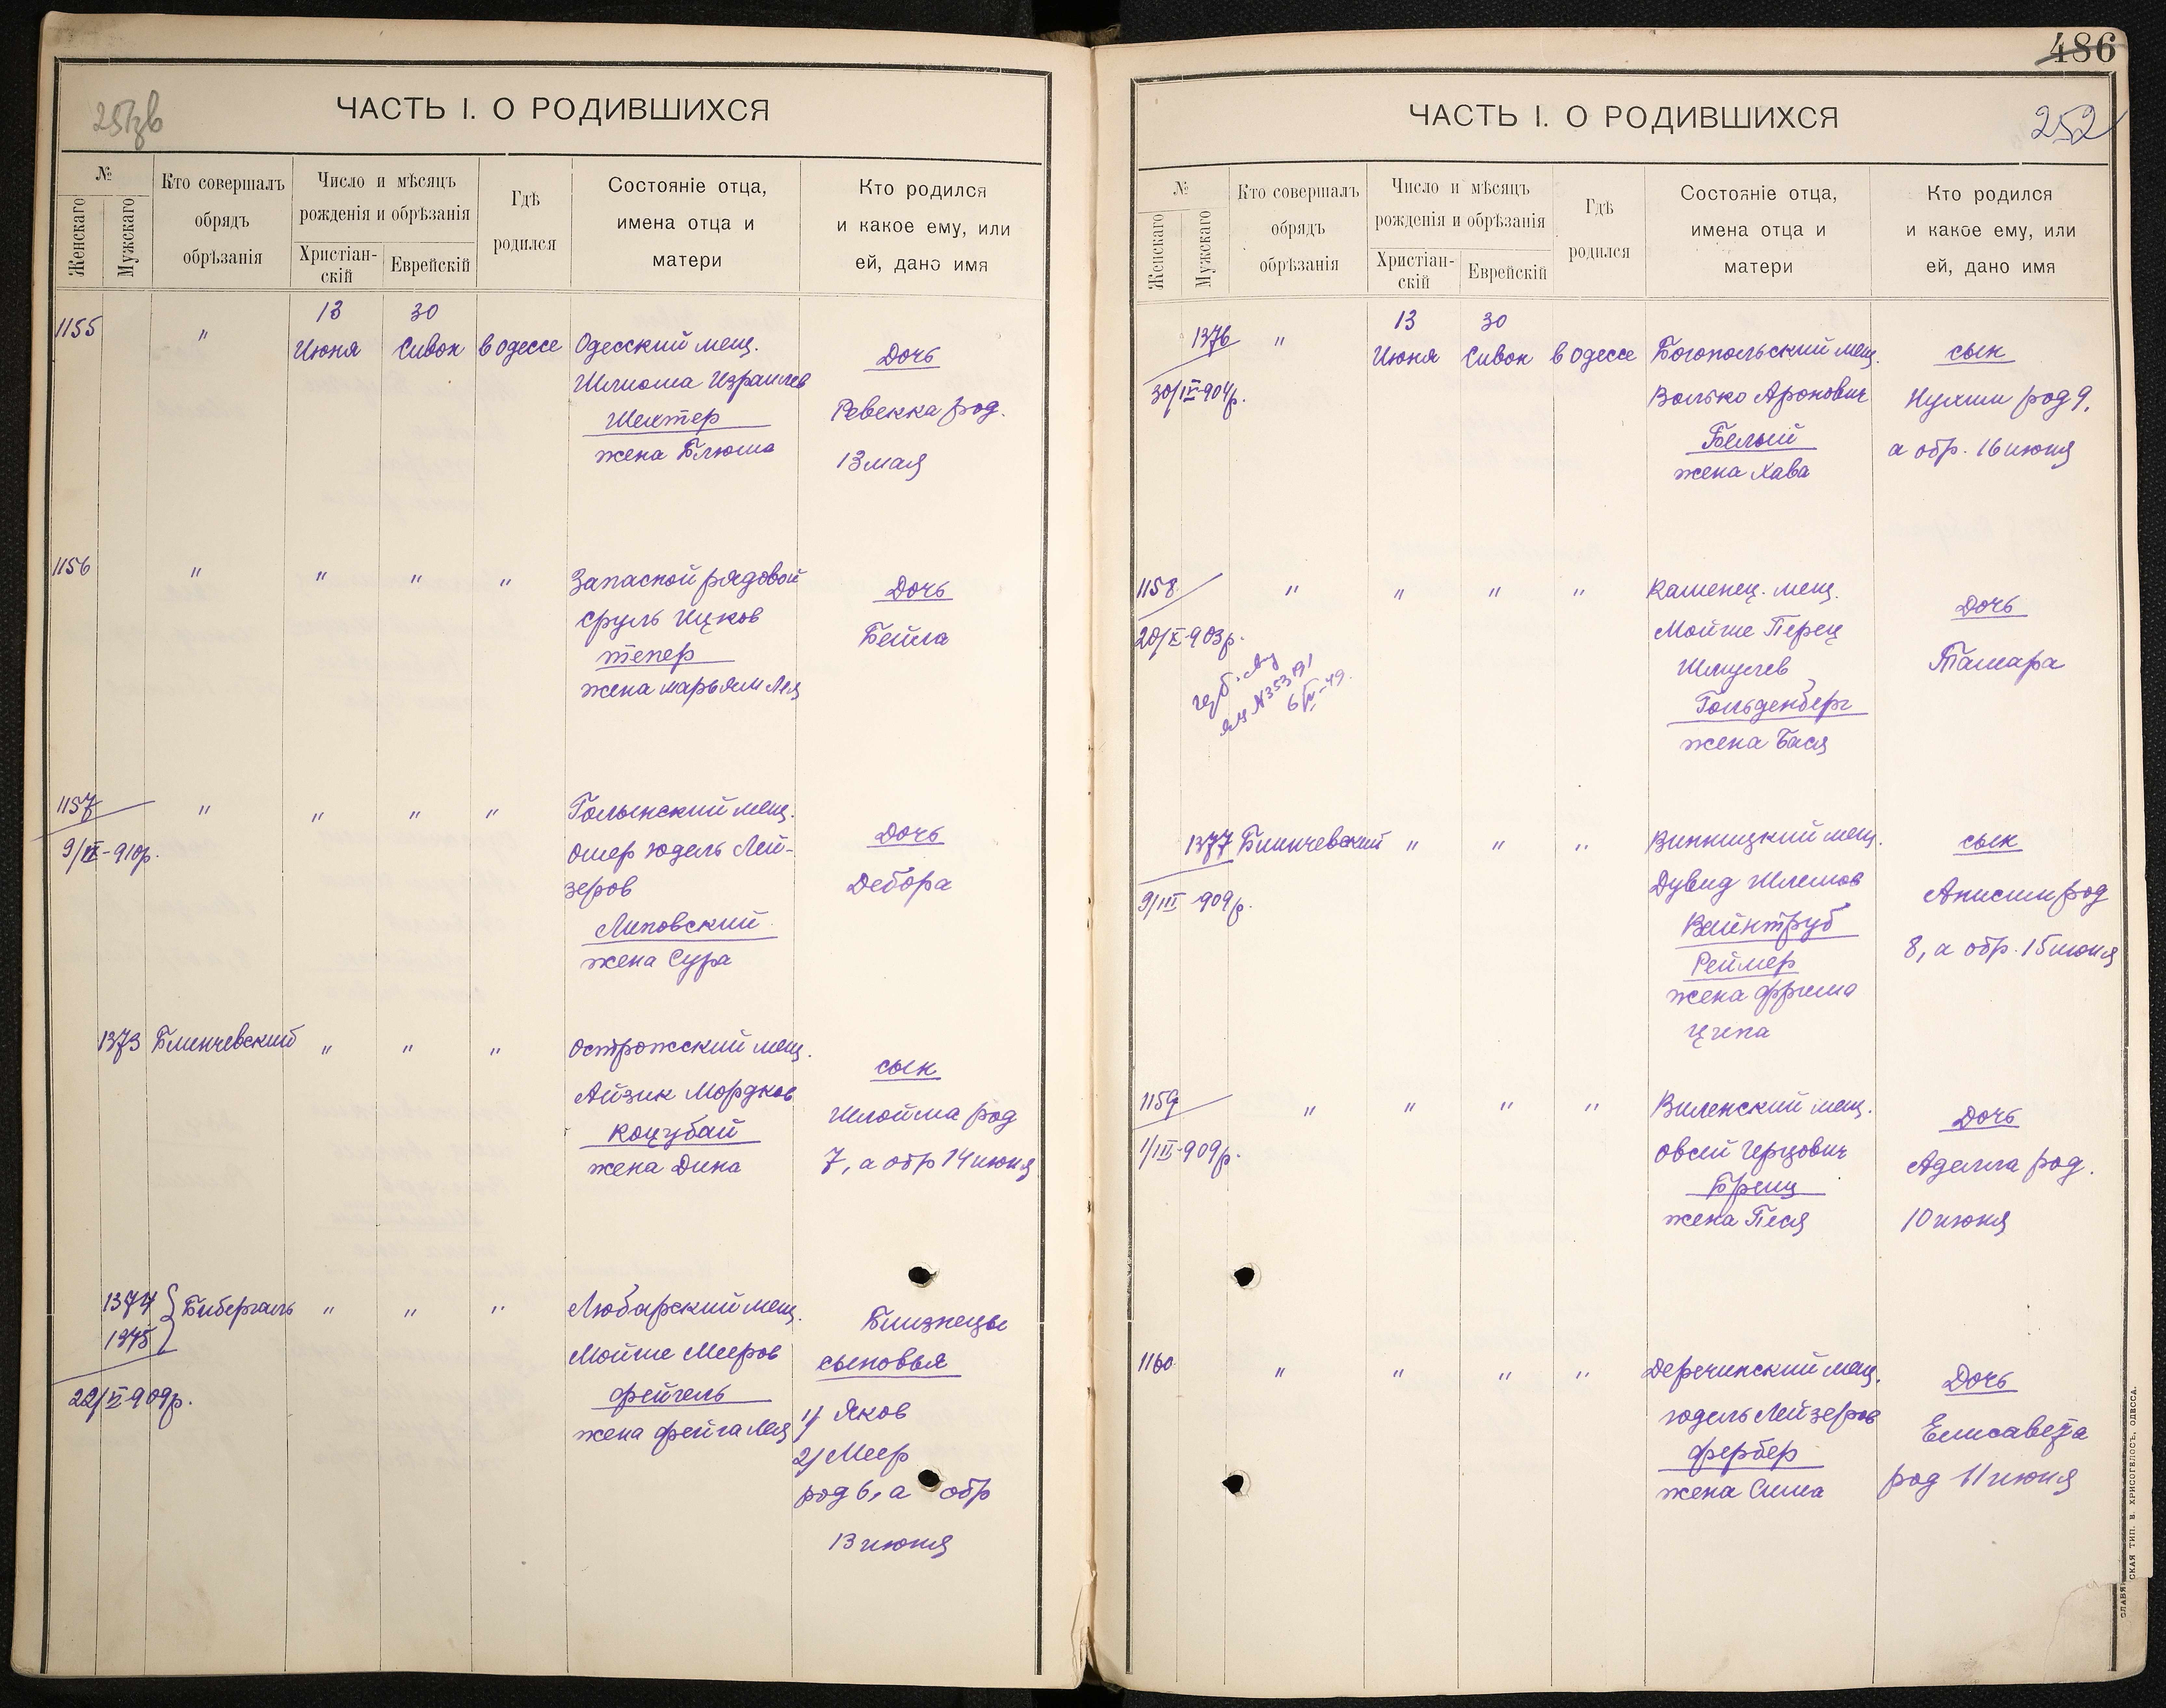 251зв
ЧАСТЬ I. О РОДИВШИХСЯ
№
Женскаго
Мужскаго
Кто совершалъ
обрядъ
обрѣзанія
Число и мѣсяцъ
рожденія и обрѣзанія
Христіан-
скій
Еврейскій
Гдѣ
родился
Состояніе отца,
имена отца и
матери
Кто родился
и какое ему, или
ей, дано имя
1155 " 13 Июня 30 Сивон в Одессе Одесский мещ.
Шлиома Израилев
Шехтер
жена Блюма
Дочь
Ревекка род.
13 мая
1156 " " " " Запасной рядовой
Сруль Ицков
Тепер
жена Марьям Лея
Дочь
Бейла
1157 " " " " Голынский мещ.
9/IX-910р.
Ошер Юдель Лей-
зеров
Липовский
жена Сура
Дочь
Дебора
1373 Блинчевский " " " Острожский мещ.
Айзик Мордков
Коцубай
жена Дина
сын
Шлойма род
7, а обр 14 июня
1374 Бибергаль " " " Любарский мещ.
1375
22/X-909р.
Мойше Мееров
Фейгель
жена Фейга Лея
Близнецы
сыновья
1) Яков
2) Меер
род 6, а обр
13 июня
486
252
ЧАСТЬ I. О РОДИВШИХСЯ
№
Женскаго
Мужскаго
Кто совершалъ
обрядъ
обрѣзанія
Число и мѣсяцъ
рожденія и обрѣзанія
Христіан-
скій
Еврейскій
Гдѣ
родился
Состояніе отца,
имена отца и
матери
Кто родился
и какое ему, или
ей, дано имя
1376 " 13 Июня 30 Сивон в Одессе Богопольский мещ.
30/IX-904р.
Волько Аронович
Белый
жена Хава
сын
Нухим род 9,
а обр. 16 июня
1158 " " " " Каменец. мещ.
20/X-903р.
№35391
Мойше Перец
Шмулев
Гольденберг
жена Бася
Дочь
Тамара
1377 Блинчевский " " " Винницкий мещ.
9/III-909р.
Дувид Шлемов
Вайнтруб
Реймер
жена Фрима
Ципа
сын
Анисим род
8, а обр. 15 июня
1159 " " " " Виленский мещ.
1/III-909р.
Овсей Герцович
жена Песя
Дочь
Аделла род.
10 июня
1160 " " " " Деречинский мещ.
Юдель Лейзеров
Фербер
жена Сима
Дочь
Елисавета
род 11 июня
СЛАВЯНСКАЯ ТИП. В. ХРИСОГЕЛОСЪ, ОДЕССА.